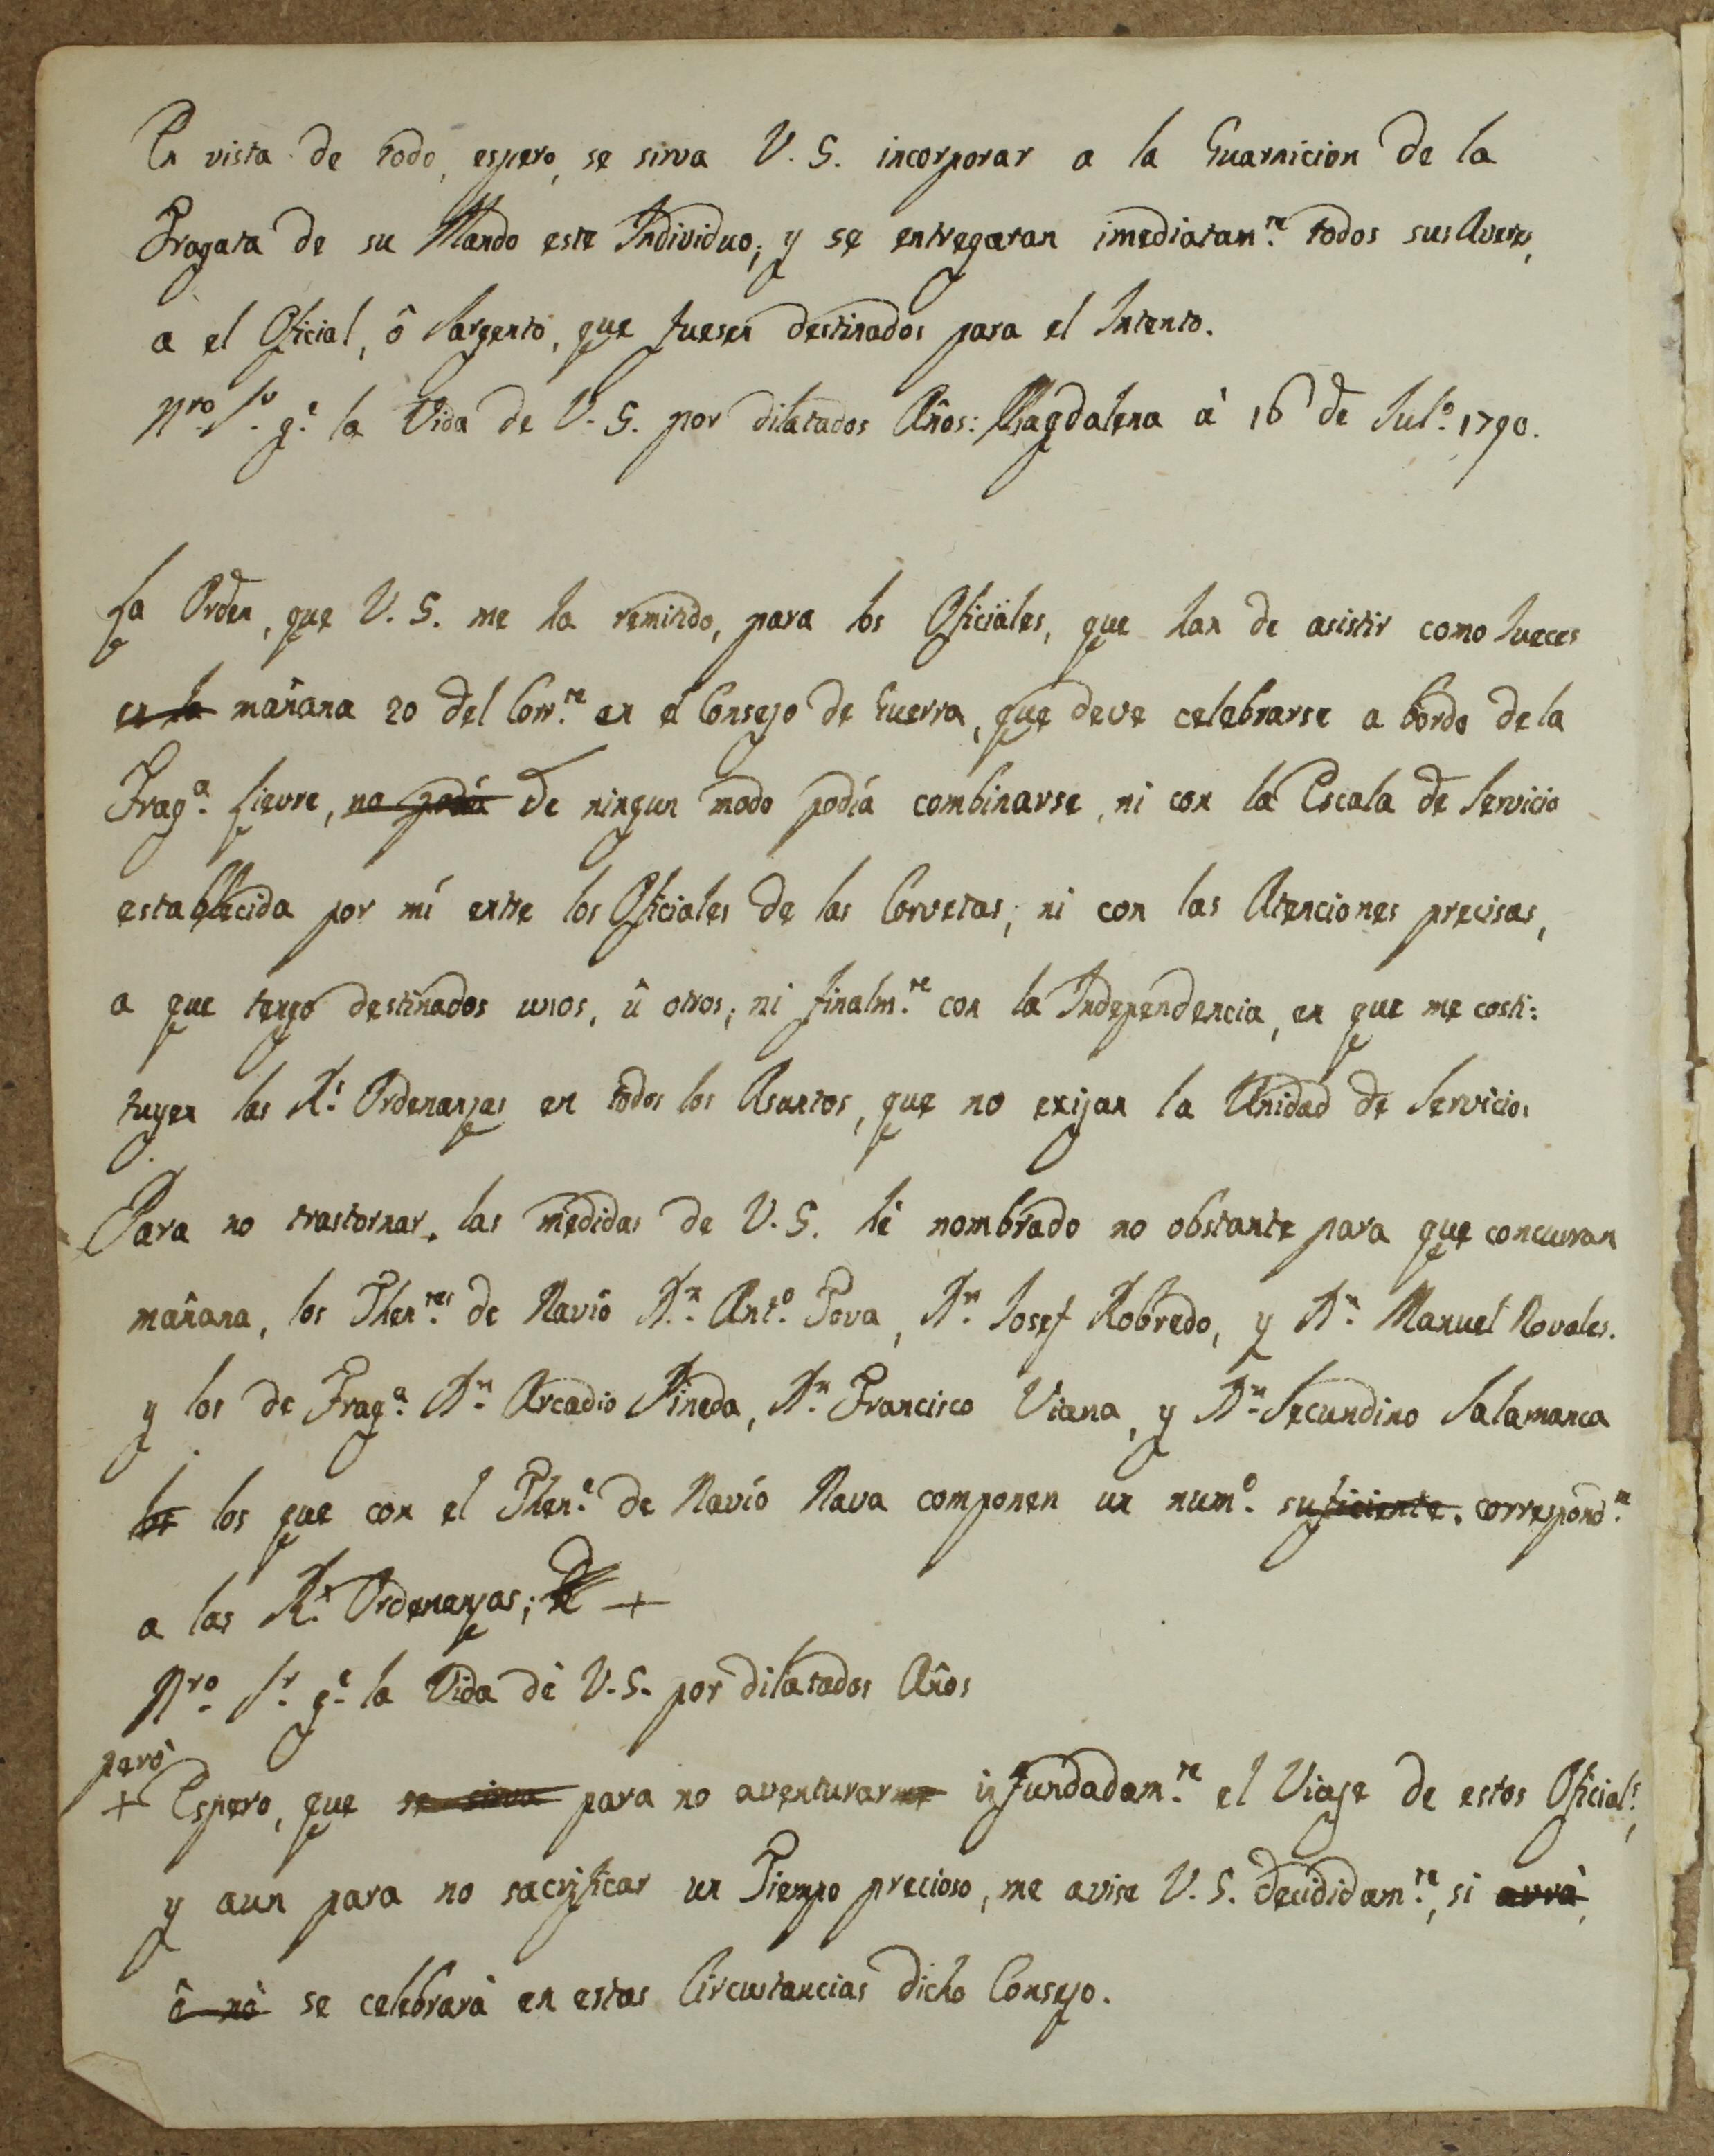 En vista de todo, espero, se sirva V. S. incorporar a la Guarnicion de la
Fragata de su Mando este Individuo; y se entregaran imediatam.te todos sus Averes,
a el Oficial, ô Sargento, que fuesen destinados para el Intento.
Nro. Sr. g.e la Vida de V. S. por dilatados Años: Magdalena à 16 de Jul.o 1790.
La Orden, que V. S. me ha remitido, para los Oficiales, que han de asistir como Jueces
en la mañana 20 del Corr.te en el Consejo de Guerra, que deve celebrarse a bordo de la
Frag.a Lievre, no podia de ningun modo podía combinarse, ni con la Escala de Servicio
establecida por mí entre los Oficiales de las Corvetas; ni con las Atenciones precisas,
a que tengo destinados unos, û otros; ni finalm.te con la Independencia, en que me costi:
tuyen las R.s Ordenanzas en todos los Asuntos, que no exijan la Unidad de Servicio.
Para no trastornar, las medidas de V. S. hè nombrado no obstante para que concurran
mañana, los Then.tes de Navio D.n Ant.o Tova, D.n Josef Robredo, y D.n Manuel Novales.
y los de Frag.a D.n Arcadio Pineda, D.n Francisco Viana, y D.n Secundino Salamanca
los que con el Then.e de Navío Nava componen un num.o suficiente. correspond.te
a las R.s Ordenanzas; +
Nro. Sr. g.e la Vida de V. S. por dilatados Años
pero
+ Espero, que se sirva para no aventurarme infundadam.te el Viaje de estos Oficial.s,
y aun para no sacrificar un Tiempo precioso, me avise V. S. decididam.te, si avrà,
ô nò se celebrarà en estas Circustancias dicho Consejo.